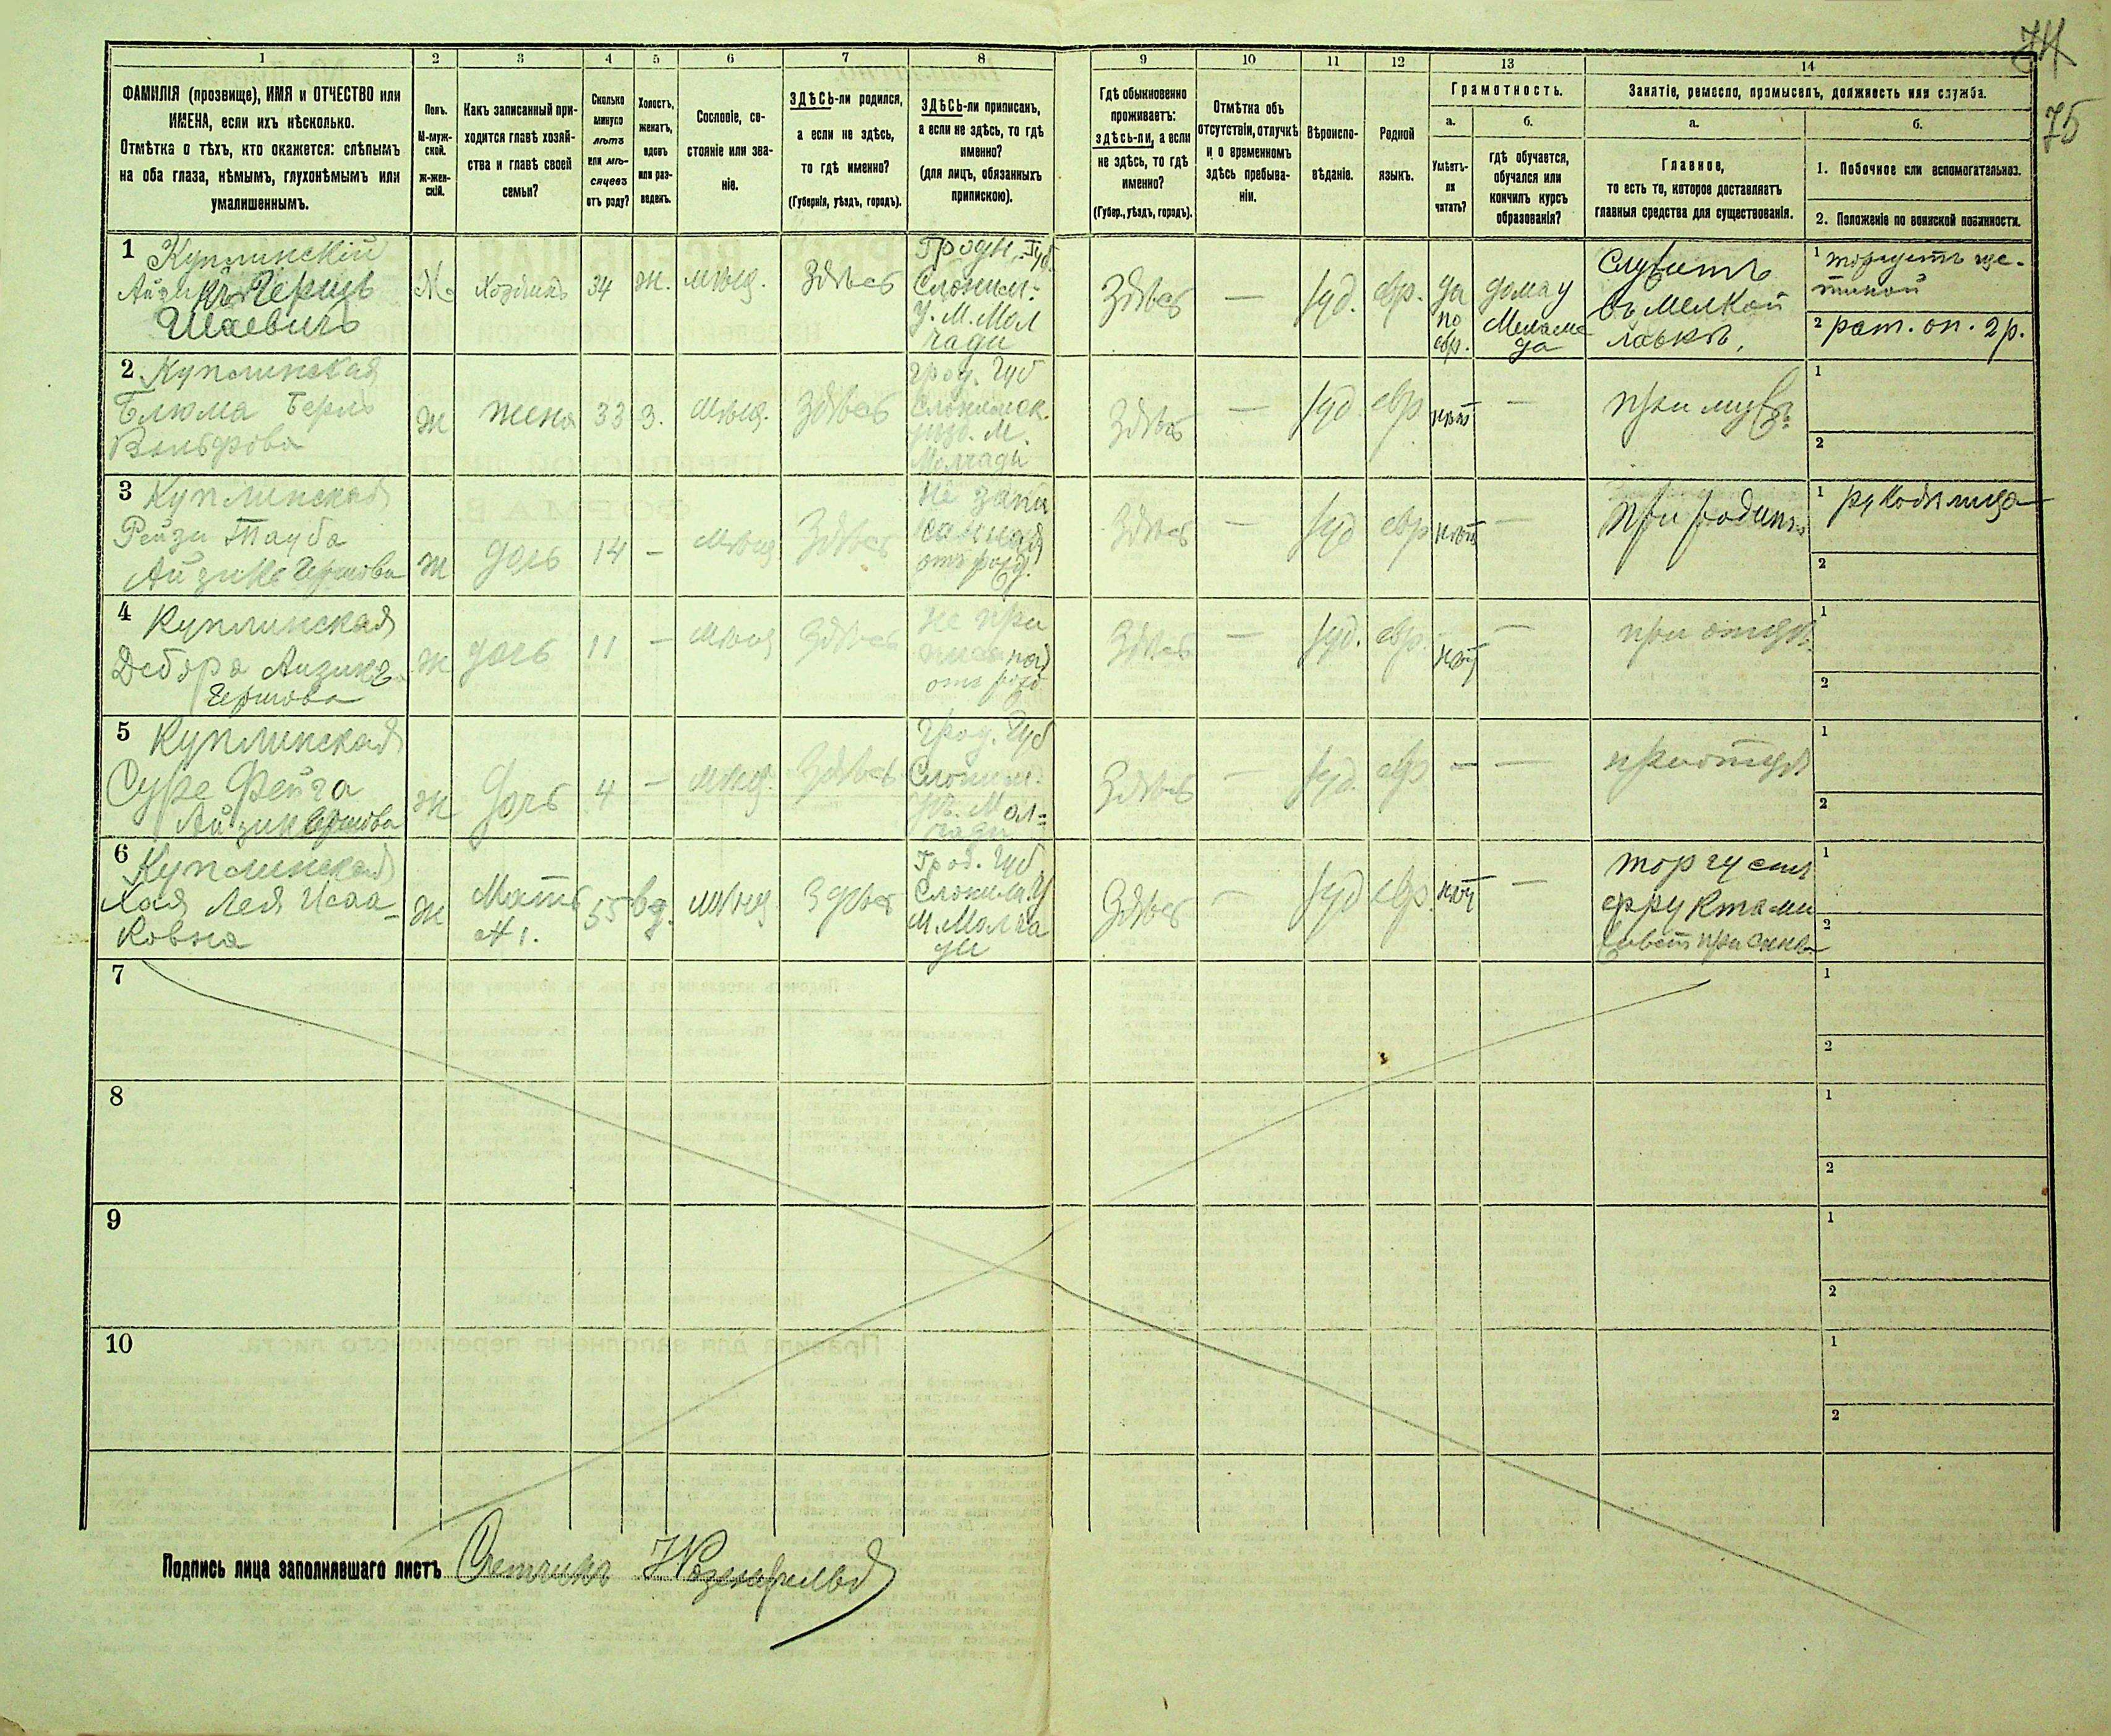 74
75
1
2
3
4
5
6
7
8
9
10
11
12
13
14
ФАМИЛІЯ (прозвище), ИМЯ и ОТЧЕСТВО или
ИМЕНА, если ихъ нѣсколько.
Отмѣтка о тѣхъ, кто окажется: слѣпымъ
на оба глаза, нѣмымъ, глухонѣмымъ или
умалишеннымъ.
Полъ.
М-муж-
ской.
Ж-жен-
скій.
Какъ записанный при-
ходится главѣ хозяй-
ства и главѣ своей
семьи?
Сколько
минуло
лѣтъ
или мѣ-
сяцевъ
отъ роду?
Холостъ,
женатъ,
вдовъ
или раз-
веденъ.
Сословіе, со-
стояніе или зва-
ніе.
ЗДѢСЬ-ли родился,
а если не здѣсь,
то гдѣ именно?
(Губернія, уѣздъ, городъ).
ЗДѢСЬ-ли приписанъ,
а если не здѣсь, то гдѣ
именно?
(для лицъ, обязанныхъ
припискою).
Гдѣ обыкновенно
проживаетъ:
здѣсь-ли, а если
не здѣсь, то гдѣ
именно?
(Губер., уѣздъ, городъ).
Отмѣтка объ
отсутствіи, отлучкѣ
и о временномъ
здѣсь пребыва-
ніи.
Вѣроиспо-
вѣданіе.
Родной
языкъ.
Грамотность.
а.
Умѣетъ-
ли
читать?
б.
гдѣ обучается,
обучался или
кончилъ курсъ
образованія?
Занятіе, ремесло, промыселъ, должность или служба.
а.
Главное,
то есть то, которое доставляетъ
главныя средства для существованія.
б.
1. Побочное или вспомогательное.
2. Положеніе по воинской повинности.
1 Куплинскій
Шаевичъ
М.
Хозяинъ
34
ж.
мѣщ.
Здѣсь
Гродн. Губ.
Слоним.
у. М. Мол
чади
Здѣсь
—
іуд.
евр.
да
по
евр.
дома у
Меламе
да
Служитъ
въ мелкой
лавкѣ,
1 торгуетъ ще-
тиной
2 рат. оп. 2 р.
2 Куплинская
Блюма Берль
Вольфова
Ж
жена
33
з.
мѣщ.
Здѣсь
Грод. Губ
Слонимск.
уѣзд. М.
Молчадь
Здѣсь
—
іуд.
евр
нѣтъ
—
при мужѣ
1
2
3 Куплинская
Рейзи Тауба
Айзикъ Гершова
Ж
дочь
14
—
мѣщ
Здѣсь
не запи
санная
Здѣсь
—
іуд
евр
нѣтъ
—
1 рукодѣлица
2
4 Куплинская
Дебора Айзикъ
Гершова
Ж
дочь
11
—
мѣщ
Здѣсь
не при
писаная
Здѣсь
—
іуд.
евр.
нѣтъ
—
при отцѣ
1
2
5 Куплинская
Суре Фейга
Айзик Гершова
Ж
дочь
4
—
мѣщ.
Здѣсь
Грод. Губ
Слоним.
Мол=
чади
Здѣсь
—
іуд.
евр.
—
—
при отцѣ
1
2
6 Куплинская
Хая Лея Исаа-
ковна
Ж
Мать
№ 1.
55
вд.
мѣщ
Здѣсь
Грод. Губ
Слоним. У
М. Молча
ди
Здѣсь
—
іуд
евр.
нѣтъ
—
торгуетъ
фруктами
живетъ при сынѣ
1
2
7
1
2
8
1
2
9
1
2
10
1
2
Подпись лица заполнявшаго листъ Счетчикъ